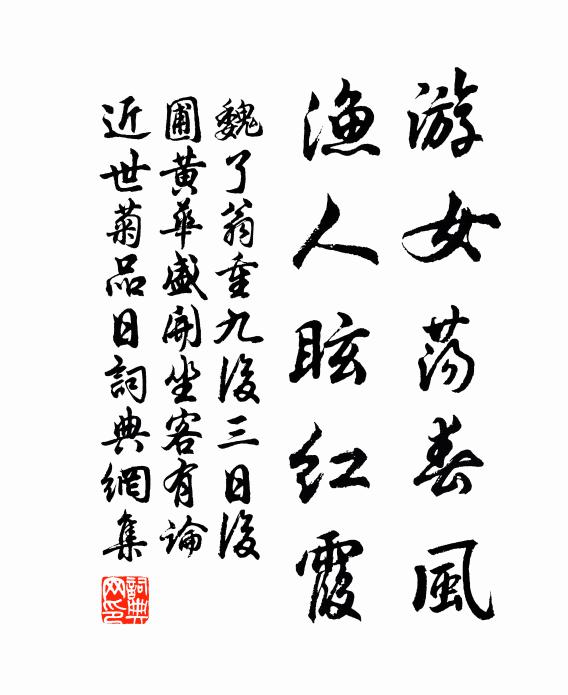 游女荡春風
漁人眩紅霞
魏了翁重九後三日後
圃黄華盛開坐客有論
近世菊品日詞典網集
詞典网印